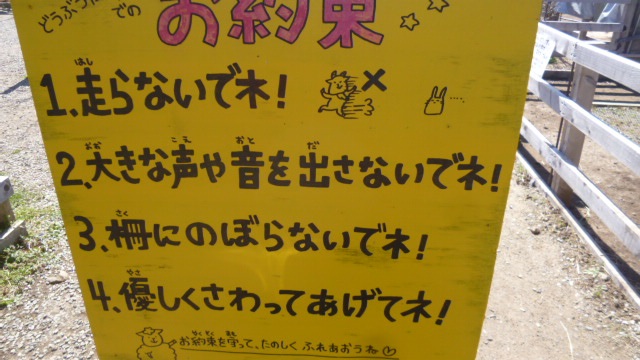 での
お約束
1.走らないでネ!
2.大きな声や音を出さないでネ!
3.柵にのぼらないでネ!
4.優しくさわってあげてネ!
お約束を守って、たのしくふれあおうね♡